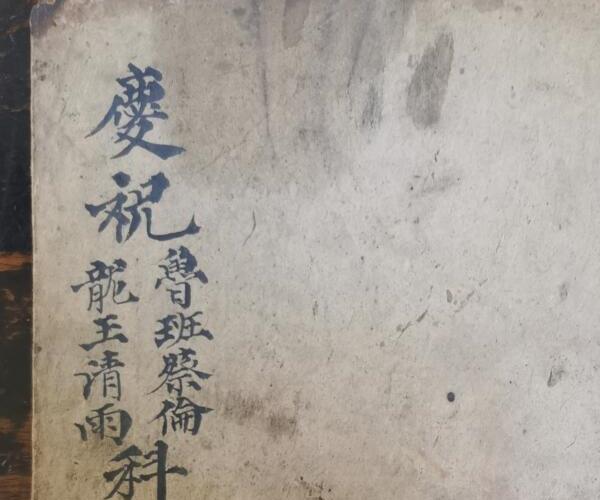 慶祝
魯班祭倫
龍王清雨
科